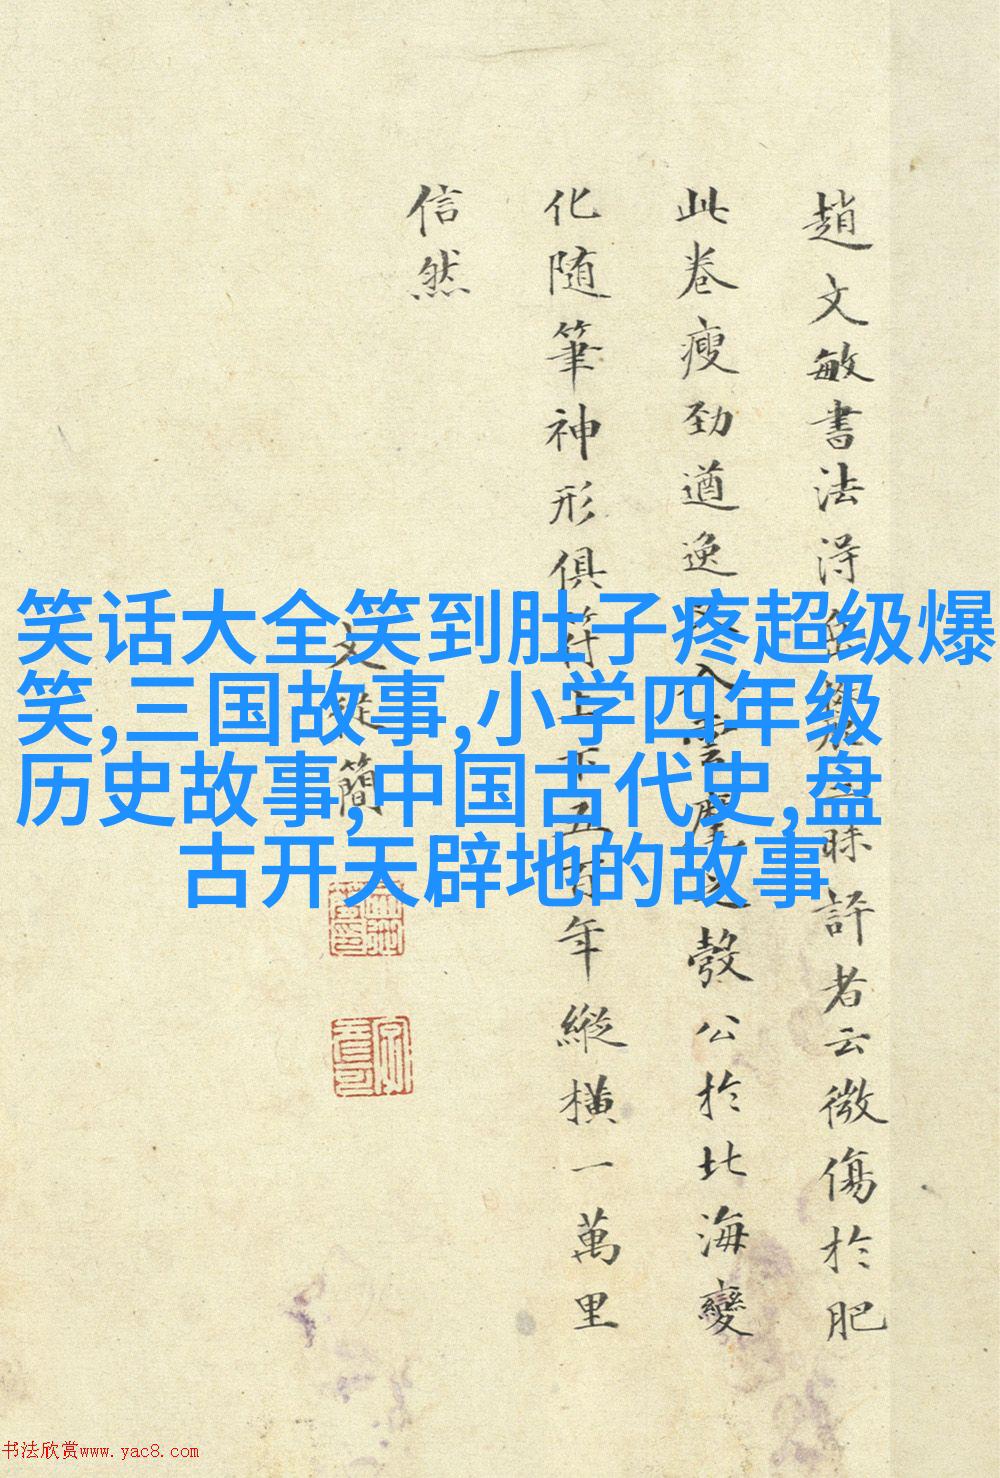 趙文敏書法得昧評者云微傷於肥
此卷瘦勁遒逸入雲麾之彀公於北海變
化随筆神形俱符上下五百年縱橫一萬里
信然
文從簡
笑话大全笑到肚子疼超级爆
笑,三国故事,小学四年级
历史故事,中国古代史,盘
古开天辟地的故事
书法欣赏www.yac8.com